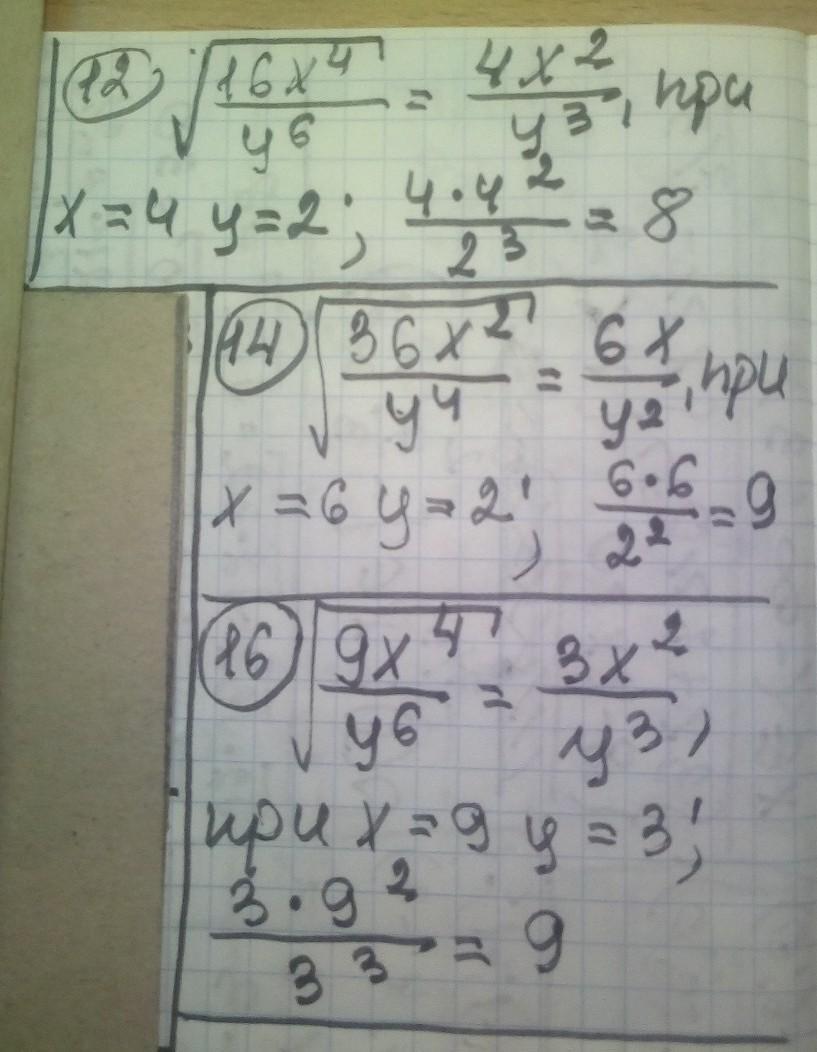 12) √(16x⁴/y⁶) = 4x²/y³, при
x = 4 y = 2; (4·4²)/2³ = 8
14 √(36x²/y⁴) = 6x/y², при
x = 6 y = 2; (6·6)/2² = 9
16 √(9x⁴/y⁶) = 3x²/y³,
при x = 9 y = 3;
(3·9²)/3³ = 9